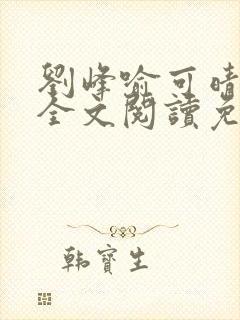 劉峰喻可晴
全文閱讀免
韩寶生